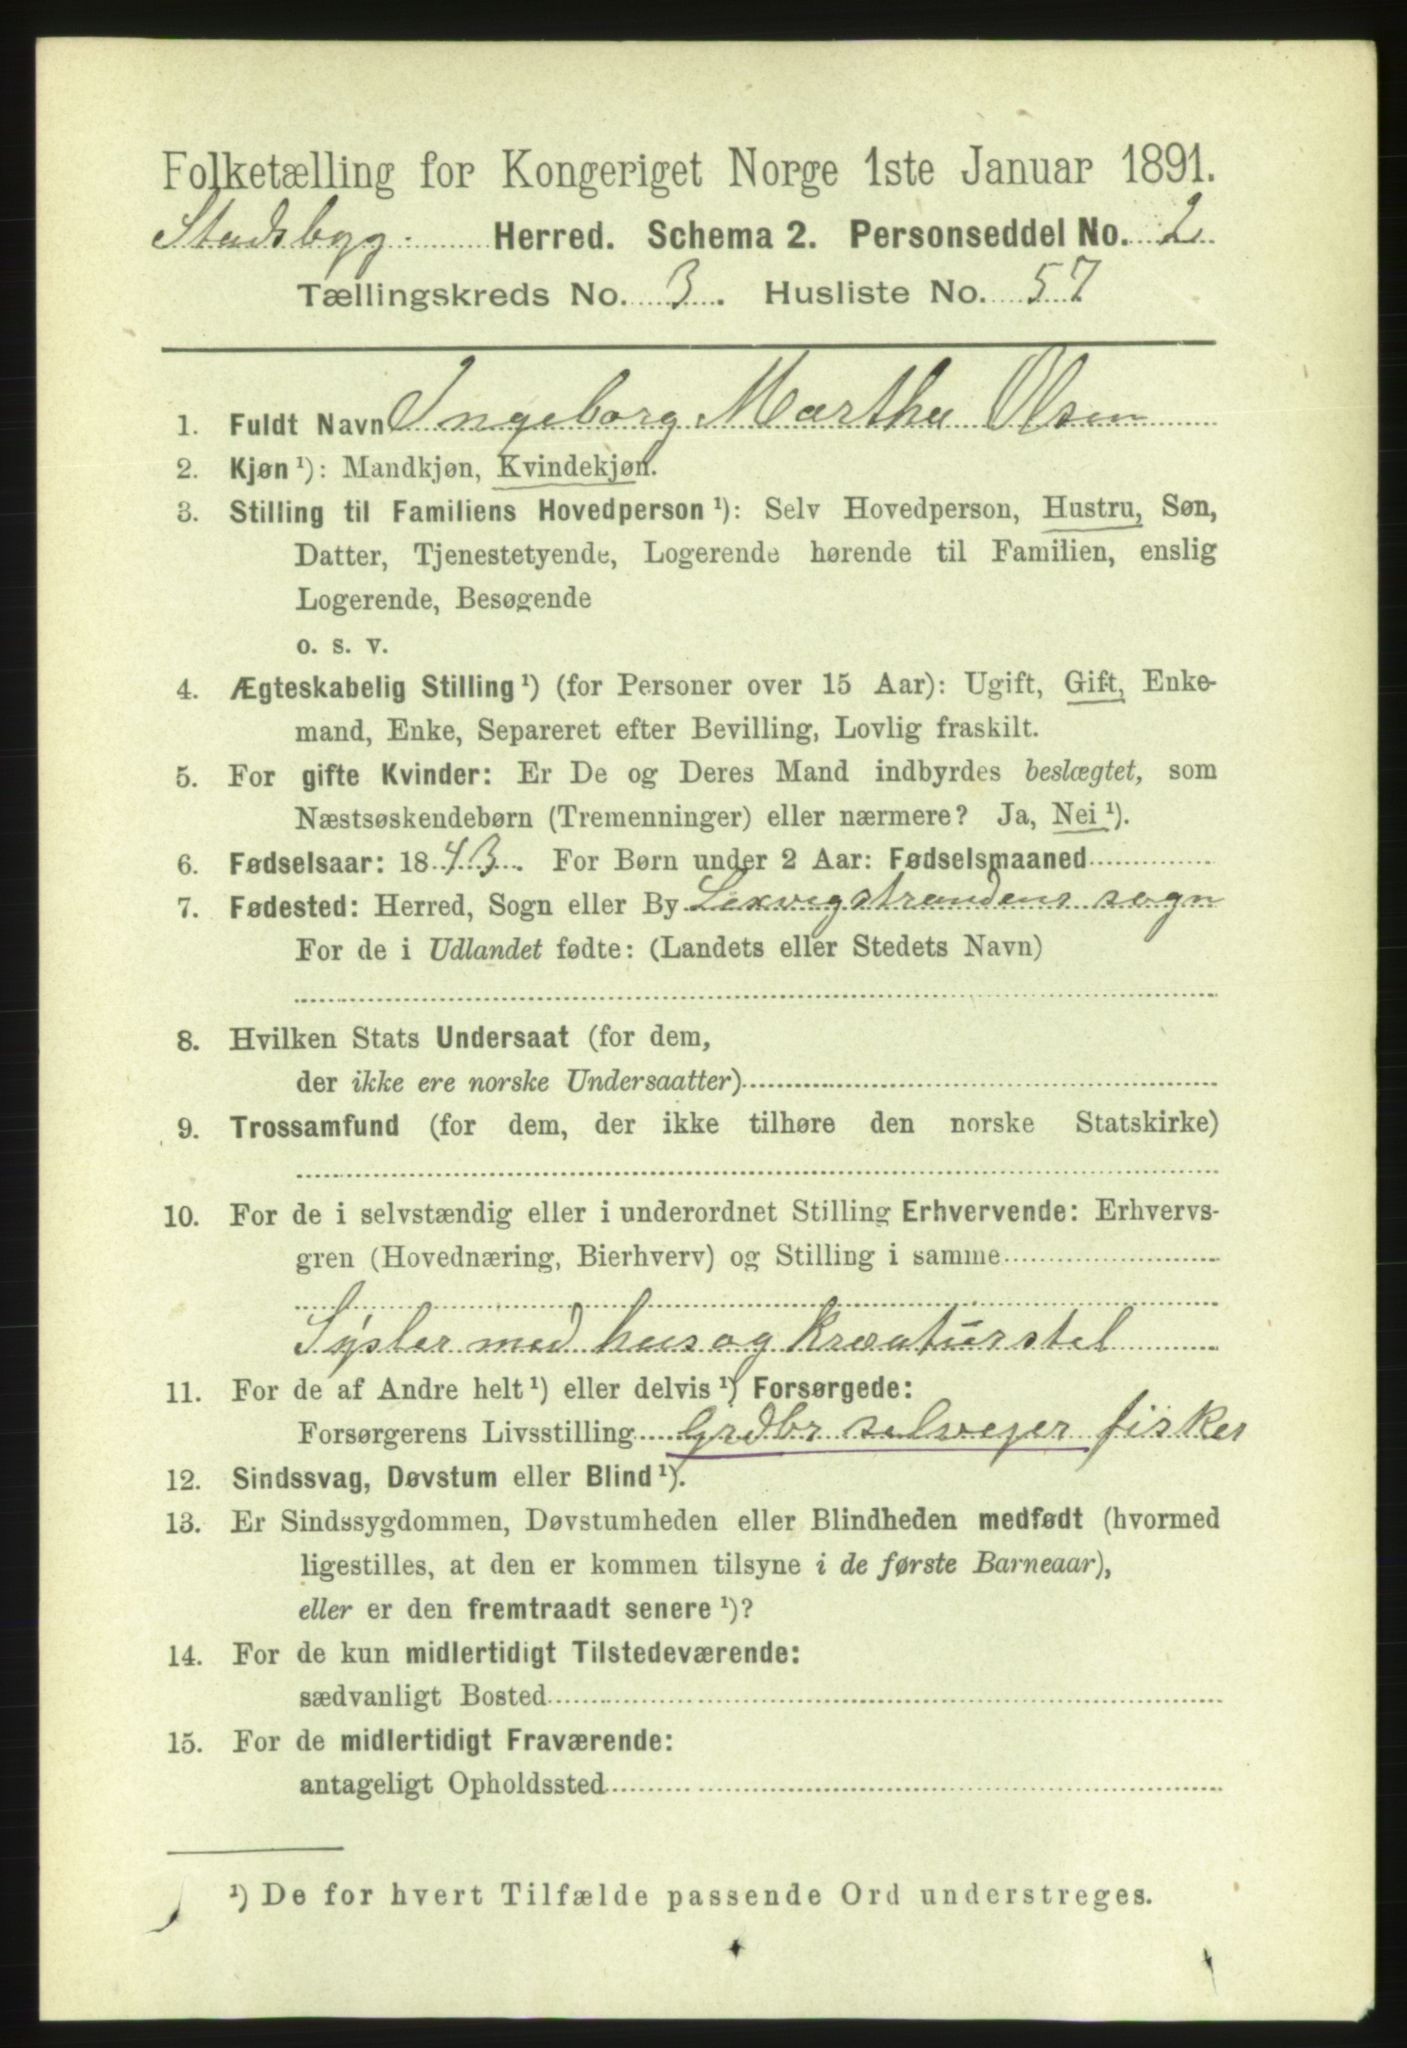 Folketælling for Kongeriget Norge 1ste Januar 1891.
Stadsbygd Herred. Schema 2. Personseddel No. 2
Tællingskreds No. 3. Husliste No. 57
1. Fuldt Navn Ingeborg Martha Olsen
2. Kjøn ¹): Mandkjøn, Kvindekjøn.
3. Stilling til Familiens Hovedperson ¹): Selv Hovedperson, Hustru, Søn,
Datter, Tjenestetyende, Logerende hørende til Familien, enslig
Logerende, Besøgende
o. s. v.
4. Ægteskabelig Stilling ¹) (for Personer over 15 Aar): Ugift, Gift, Enke-
mand, Enke, Separeret efter Bevilling, Lovlig fraskilt.
5. For gifte Kvinder: Er De og Deres Mand indbyrdes beslægtet, som
Næstsøskendebørn (Tremenninger) eller nærmere? Ja, Nei ¹).
6. Fødselsaar: 1843. For Børn under 2 Aar: Fødselsmaaned
7. Fødested: Herred, Sogn eller By Lexvigstrandens sogn
For de i Udlandet fødte: (Landets eller Stedets Navn)
8. Hvilken Stats Undersaat (for dem,
der ikke ere norske Undersaatter)
9. Trossamfund (for dem, der ikke tilhøre den norske Statskirke)
10. For de i selvstændig eller i underordnet Stilling Erhvervende: Erhvervs-
gren (Hovednæring, Bierhverv) og Stilling i samme
Sysler med hus og kreaturstel
11. For de af Andre helt ¹) eller delvis ¹) Forsørgede:
Forsørgerens Livsstilling Grdbr selvejer fisker
12. Sindssvag, Døvstum eller Blind ¹).
13. Er Sindssygdommen, Døvstumheden eller Blindheden medfødt (hvormed
ligestilles, at den er kommen tilsyne i de første Barneaar),
eller er den fremtraadt senere ¹)?
14. For de kun midlertidigt Tilstedeværende:
sædvanligt Bosted
15. For de midlertidigt Fraværende:
antageligt Opholdssted
¹) De for hvert Tilfælde passende Ord understreges.